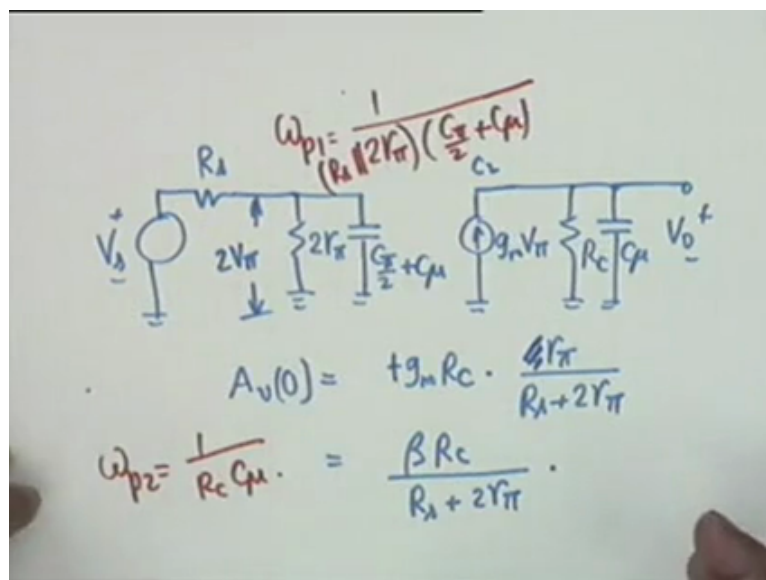 ωp1 = 1 / (Rs || 2rπ) (Cπ/2 + Cμ)
Rs
C2
+ Vs −
2Vπ
2rπ
Cπ/2 + Cμ
gmVπ
RC
Cμ
Vo +
−
Av(0) = +gmRC · rπ / Rs + 2rπ
ωp2 = 1 / RC Cμ . = βRC / Rs + 2rπ .